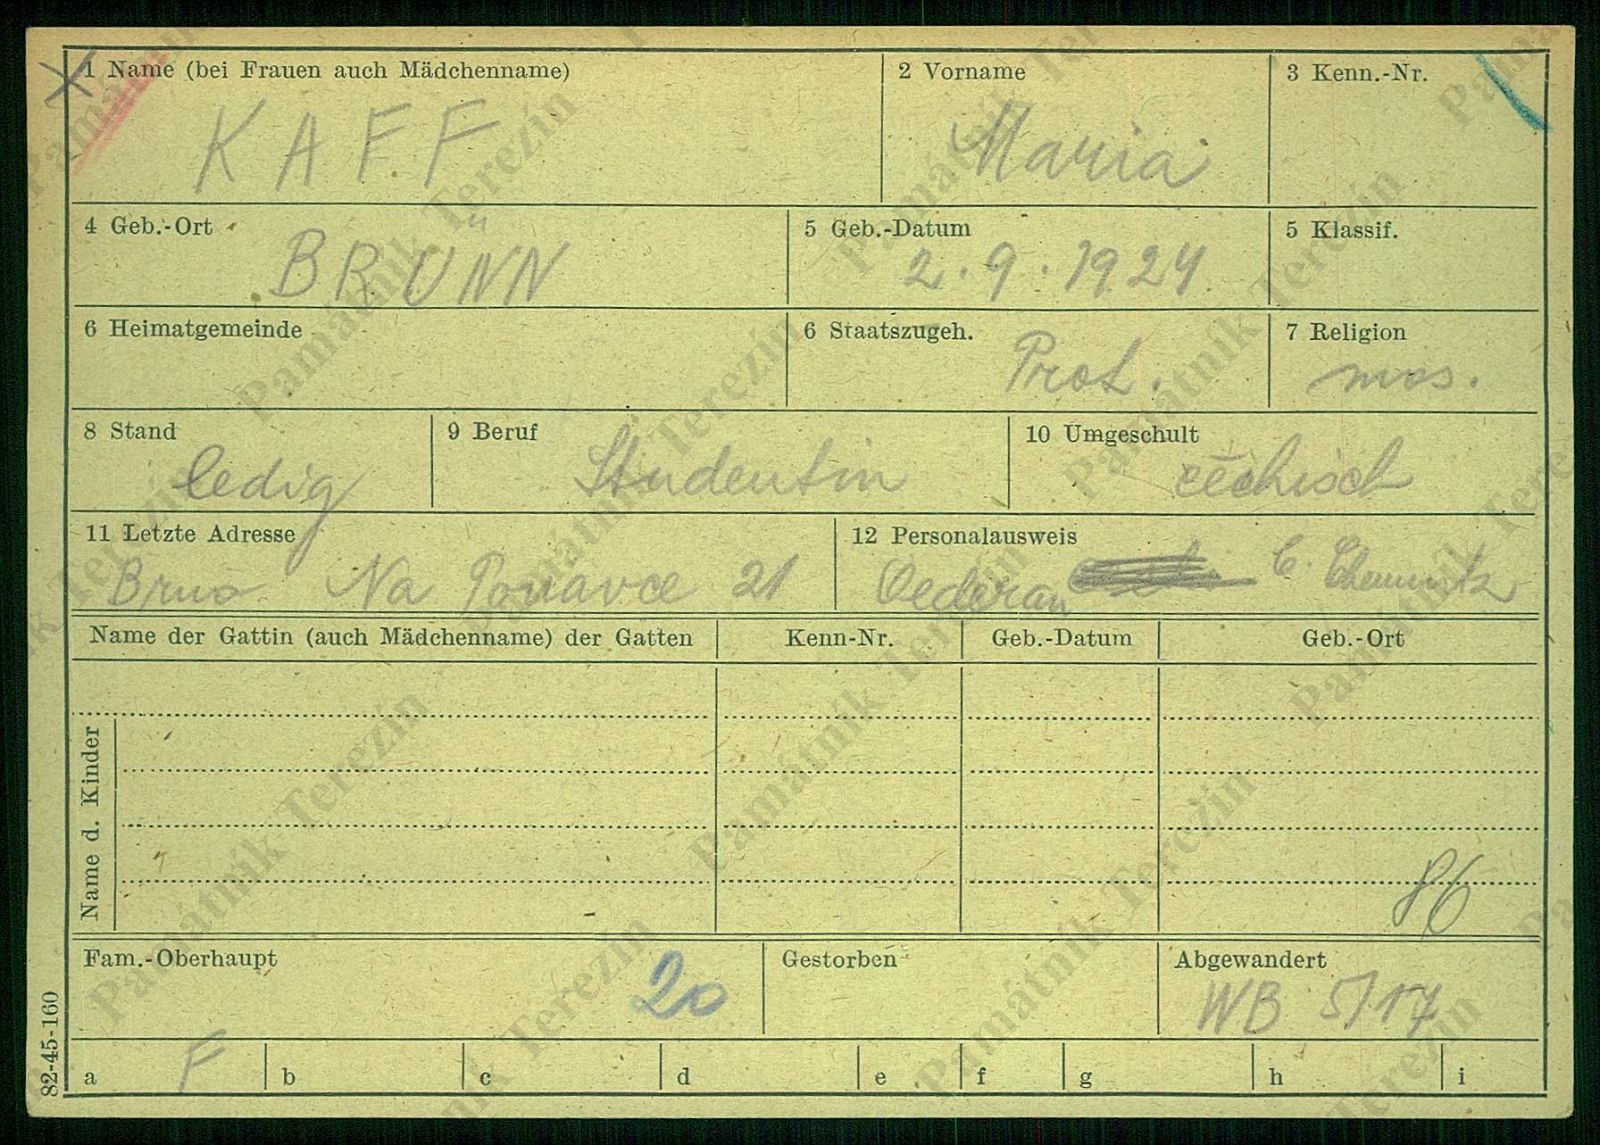 1 Name (bei Frauen auch Mädchenname)
KAFF
2 Vorname
Maria
3 Kenn.-Nr.
4 Geb.-Ort
BRÜNN
5 Geb.-Datum
2.9.1924
5 Klassif.
6 Heimatgemeinde
6 Staatszugeh.
Prot.
7 Religion
mos.
8 Stand
ledig
9 Beruf
Studentin
10 Umgeschult
cěchisch
11 Letzte Adresse
Brno Na Ponavce 21
12 Personalausweis
Oederan Chemnitz
Name der Gattin (auch Mädchenname) der Gatten
Kenn-Nr.
Geb.-Datum
Geb.-Ort
Name d. Kinder
86
Fam.-Oberhaupt
20
Gestorben
Abgewandert
WB 5/17
a F b c d e f g h i
82-45-160
Památník Terezín